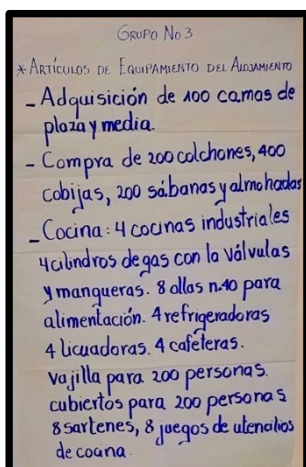 GRUPO No 3
* ARTÍCULOS DE EQUIPAMIENTO DEL ALOJAMIENTO
- Adquisición de 100 camas de
plaza y media.
- Compra de 200 colchones, 400
cobijas, 200 sábanas y almohadas
- Cocina: 4 cocinas industriales
4 cilindros de gas con la válvulas
y mangueras. 8 ollas n.40 para
alimentación. 4 refrigeradoras
4 licuadoras. 4 cafeteras.
Vajilla para 200 personas.
cubiertos para 200 personas
8 sartenes, 8 juegos de utencilios
de cocina.